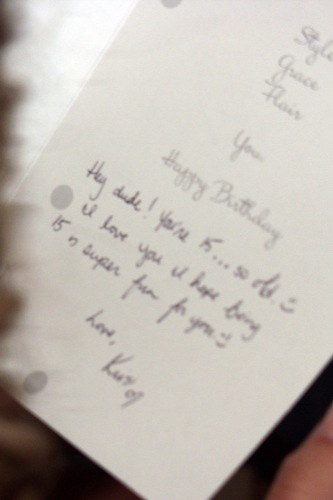 Style
Grace
Flair
You
Happy Birthday
Hey dude! You're 15... so old. :)
I love you I hope being
15 is super fun for you :)
Love,